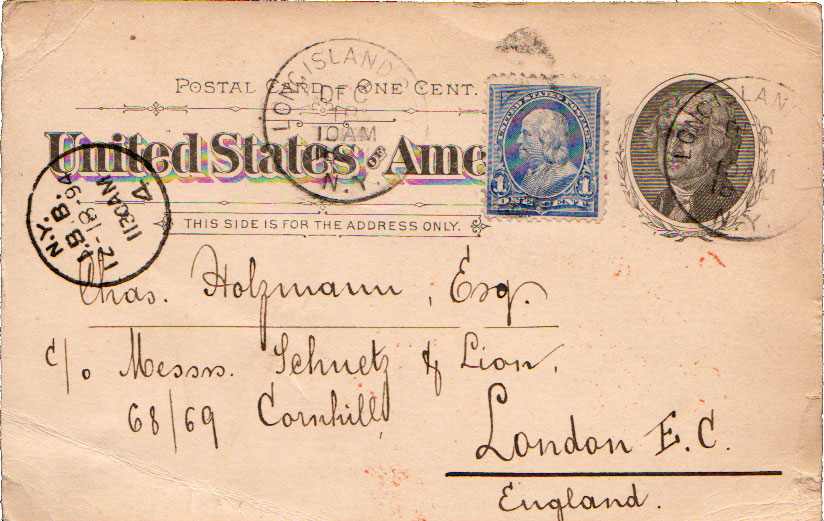 POSTAL CARD ONE CENT.
United States of Ame
THIS SIDE IS FOR THE ADDRESS ONLY.
LONG ISLAND
DEC
18
10AM
N.Y.
UNITED STATES POSTAGE
1 1
ONE CENT
LONG ISLAND
N.Y.
N.Y.
12-18-94
1130AM
4
Chas. Holzmann, Esq.
c/o Messrs. Schuetz & Lion,
68/69 Cornhill,
London E.C.
England.